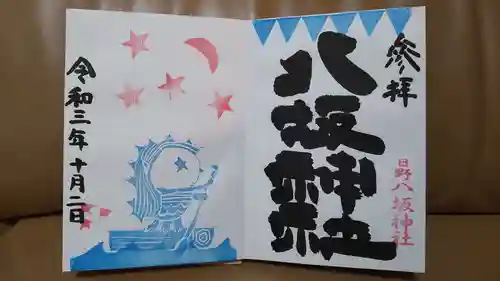 参拝
八坂神社
日野八坂神社
令和三年十月二日